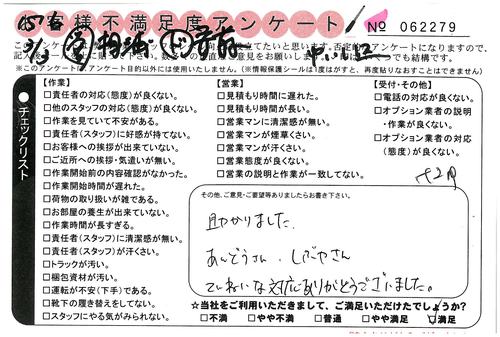 お客様不満足度アンケート
№ 062279
※このアンケートはアンケート目的以外には使用いたしません。（※情報保護シールは1度がすと、再度貼りなおすことはできません）
チェックリスト
【作業】
□責任者の対応(態度)が良くない。
□他のスタッフの対応(態度)が良くない。
□作業を見ていて不安がある。
□責任者(スタッフ)に好感が持てない。
□お客様への挨拶が出来ていない。
□ご近所への挨拶・気遣いが無い。
□作業開始前の内容確認がなかった。
□作業開始時間が遅れた。
□荷物の取り扱いが雑である。
□お部屋の養生が出来ていない。
□作業時間が長すぎる。
□責任者(スタッフ)に清潔感が無い。
□責任者(スタッフ)が汗くさい。
□トラックが汚い。
□梱包資材が汚い。
□運転が不安(下手)である。
□靴下の履き替えをしてない。
□スタッフにやる気がみられない。
【営業】
□見積もり時間に遅れた。
□見積もり時間が長い。
□営業マンに清潔感が無い。
□営業マンが煙草くさい。
□営業マンが汗くさい。
□営業態度が良くない。
□営業の説明と作業が一致してない。
【受付・その他】
□電話の対応が良くない。
□オプション業者の説明
・作業が良くない。
□オプション業者の対応
(態度)が良くない。
その他、ご意見・ご要望等ありましたらお書き下さい。
助かりました。
あんどうさん、しばやさん
ていねいな対応ありがとうございました。
☆当社をご利用いただきまして、ご満足いただけたでしょうか？
□不満 □やや不満 □普通 □やや満足 ☑満足